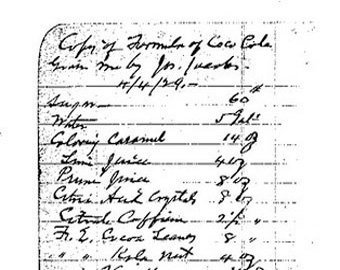 Copy of Formula of Coco Cola
Given me by Jos. Jacobs.
4/4/29.-
Sugar 60 #
Water 5 Gals
Coloring Caramel 14 oz
Lime Juice 4 oz
Prune Juice 8 oz
Citric Acid Crystals 8 oz
Citrate Caffein 2½ "
F. E. Cocoa Leaves 8 "
" " Kola Nut 4 oz